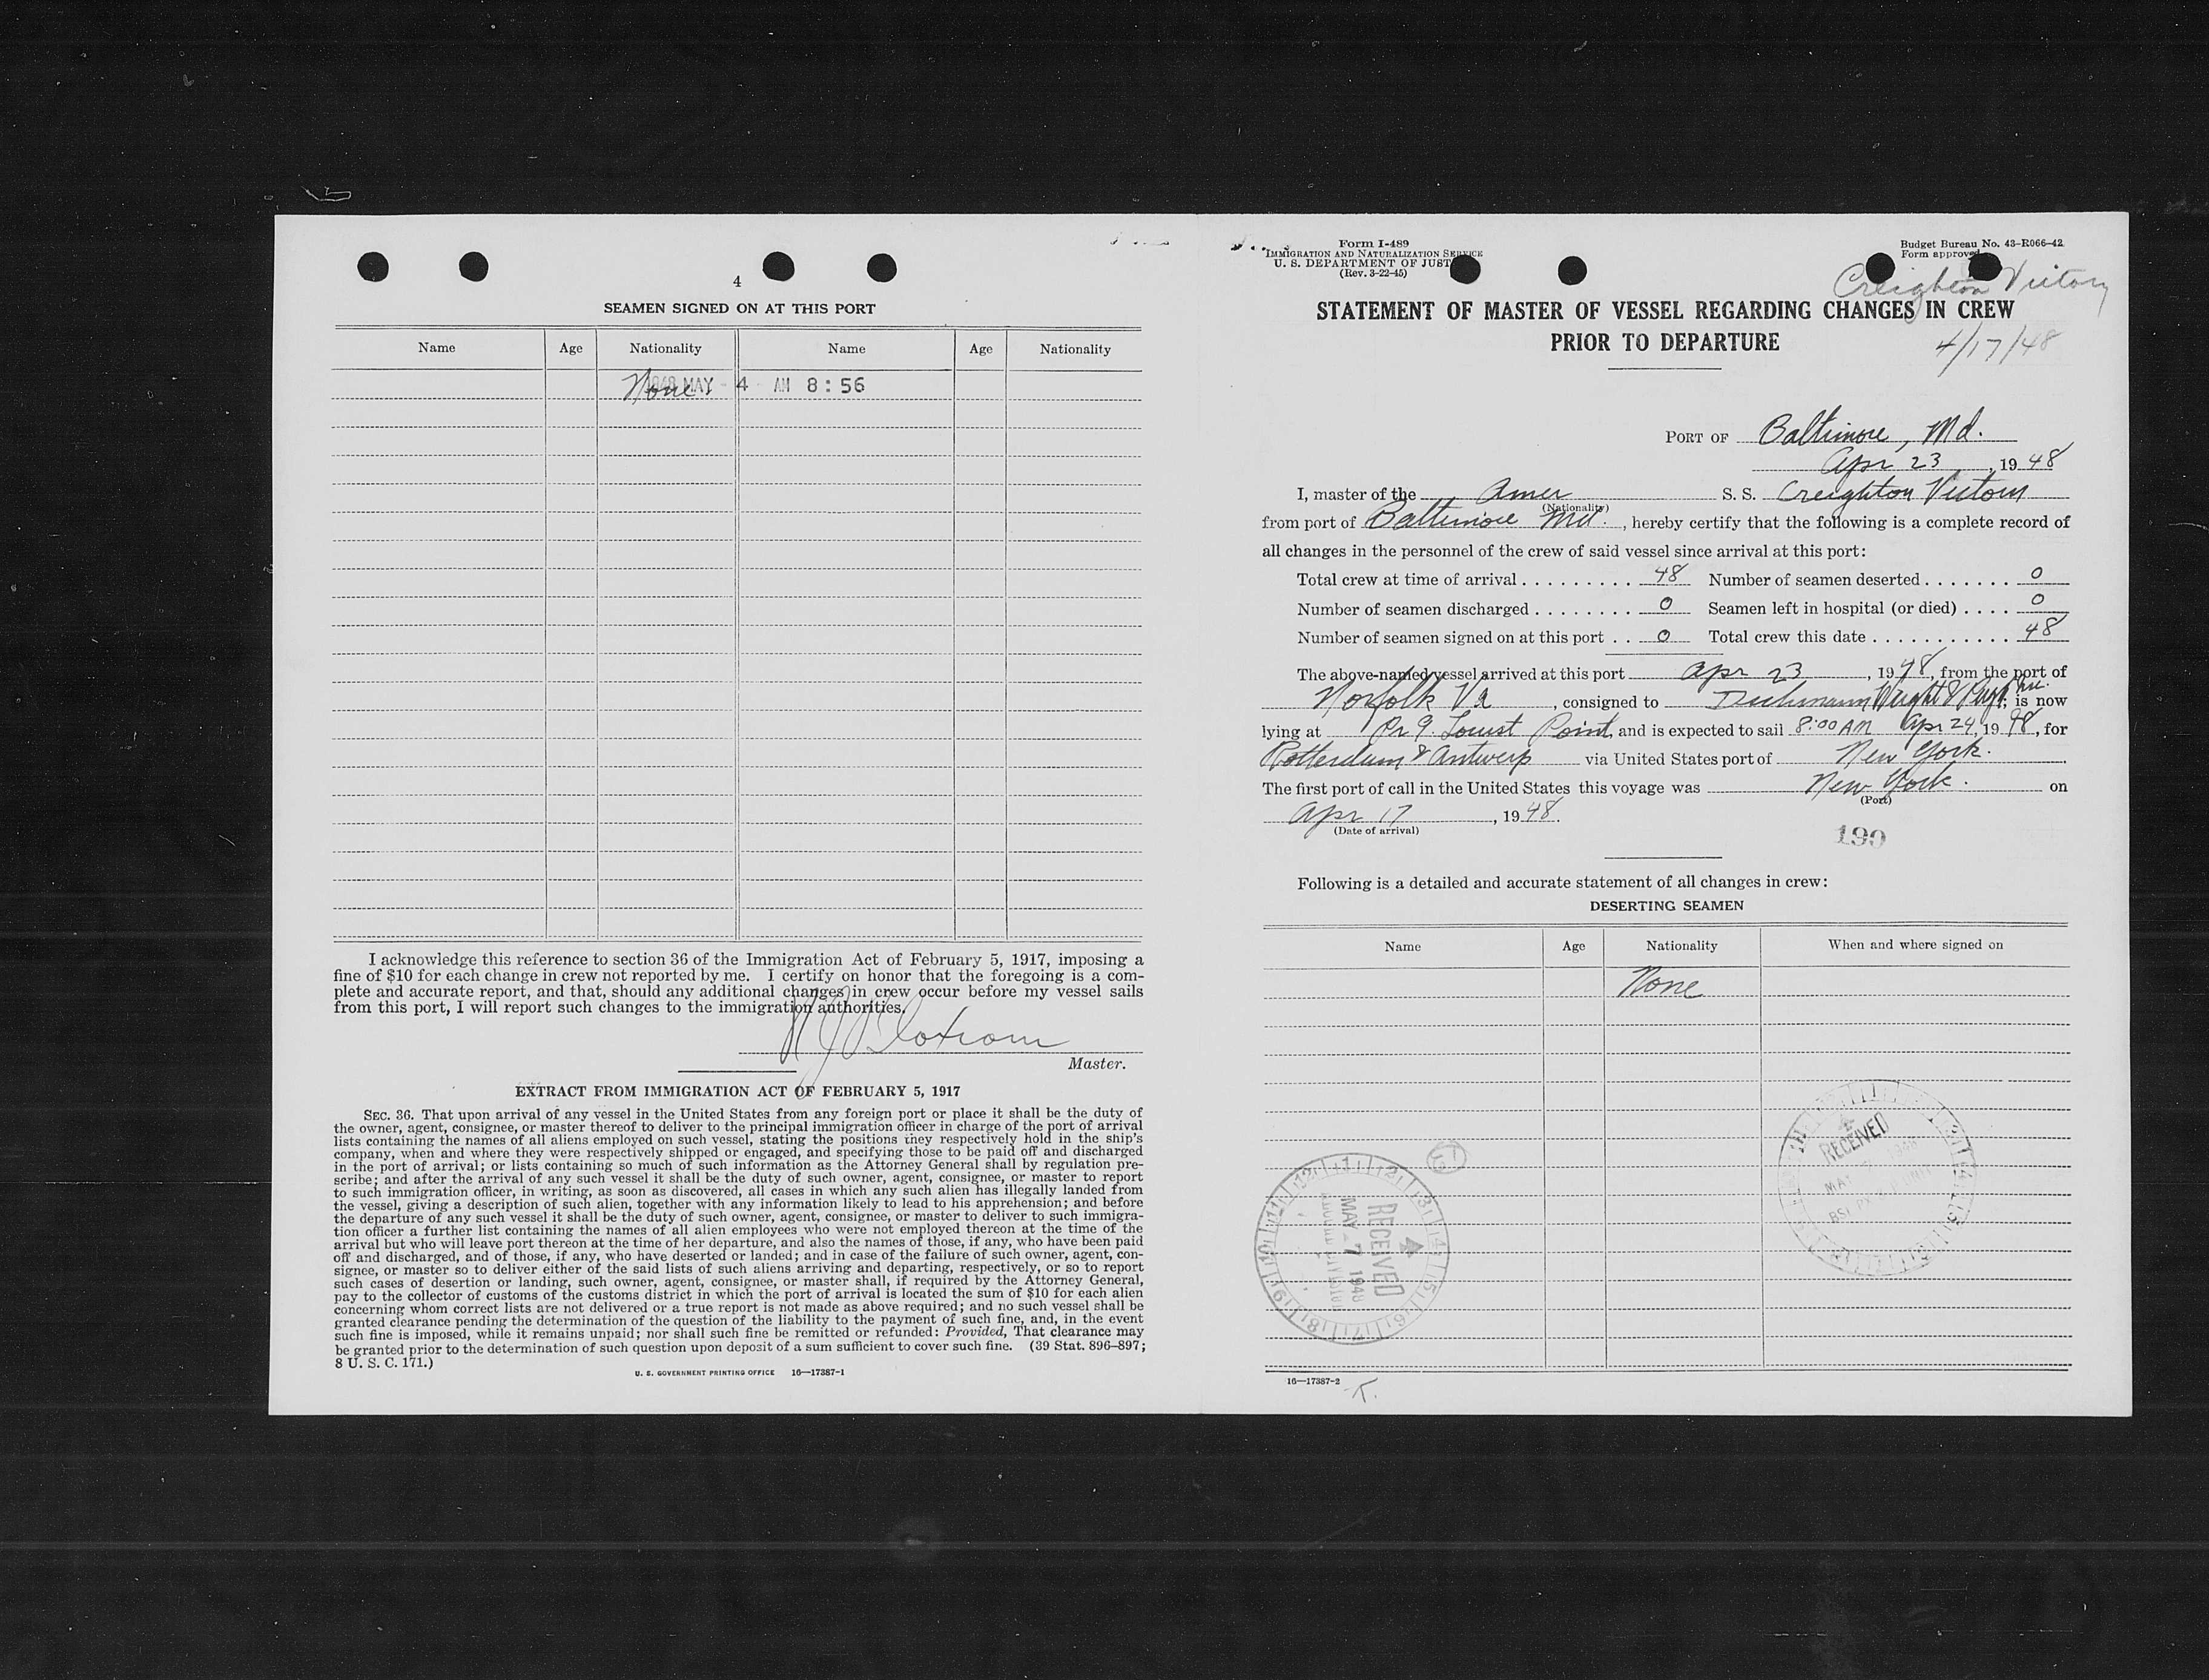 4
SEAMEN SIGNED ON AT THIS PORT
Name Age Nationality Name Age Nationality
None
1948 MAY - 4 AM 8:56
I acknowledge this reference to section 36 of the Immigration Act of February 5, 1917, imposing a
fine of $10 for each change in crew not reported by me. I certify on honor that the foregoing is a com-
plete and accurate report, and that, should any additional changes in crew occur before my vessel sails
from this port, I will report such changes to the immigration authorities.
Master.
EXTRACT FROM IMMIGRATION ACT OF FEBRUARY 5, 1917
SEC. 36. That upon arrival of any vessel in the United States from any foreign port or place it shall be the duty of
the owner, agent, consignee, or master thereof to deliver to the principal immigration officer in charge of the port of arrival
lists containing the names of all aliens employed on such vessel, stating the positions they respectively hold in the ship's
company, when and where they were respectively shipped or engaged, and specifying those to be paid off and discharged
in the port of arrival; or lists containing so much of such information as the Attorney General shall by regulation pre-
scribe; and after the arrival of any such vessel it shall be the duty of such owner, agent, consignee, or master to report
to such immigration officer, in writing, as soon as discovered, all cases in which any such alien has illegally landed from
the vessel, giving a description of such alien, together with any information likely to lead to his apprehension; and before
the departure of any such vessel it shall be the duty of such owner, agent, consignee, or master to deliver to such immigra-
tion officer a further list containing the names of all alien employees who were not employed thereon at the time of the
arrival but who will leave port thereon at the time of her departure, and also the names of those, if any, who have been paid
off and discharged, and of those, if any, who have deserted or landed; and in case of the failure of such owner, agent, con-
signee, or master so to deliver either of the said lists of such aliens arriving and departing, respectively, or so to report
such cases of desertion or landing, such owner, agent, consignee, or master shall, if required by the Attorney General,
pay to the collector of customs of the customs district in which the port of arrival is located the sum of $10 for each alien
concerning whom correct lists are not delivered or a true report is not made as above required; and no such vessel shall be
granted clearance pending the determination of the question of the liability to the payment of such fine, and, in the event
such fine is imposed, while it remains unpaid; nor shall such fine be remitted or refunded: Provided, That clearance may
be granted prior to the determination of such question upon deposit of a sum sufficient to cover such fine. (39 Stat. 896–897;
8 U. S. C. 171.)
U. S. GOVERNMENT PRINTING OFFICE 16—17387-1
Form I-489
IMMIGRATION AND NATURALIZATION SERVICE
U. S. DEPARTMENT OF JUST
(Rev. 3-22-45)
Budget Bureau No. 43-R066-42
Form approved
Creighton Victory
STATEMENT OF MASTER OF VESSEL REGARDING CHANGES IN CREW
PRIOR TO DEPARTURE
4/17/48
PORT OF Baltimore, Md.
Apr 23, 1948
I, master of the Amer S. S. Creighton Victory
(Nationality)
from port of Baltimore Md., hereby certify that the following is a complete record of
all changes in the personnel of the crew of said vessel since arrival at this port:
Total crew at time of arrival 48 Number of seamen deserted 0
Number of seamen discharged 0 Seamen left in hospital (or died) 0
Number of seamen signed on at this port 0 Total crew this date 48
The above-named vessel arrived at this port Apr 23, 1948, from the port of
Norfolk Va, consigned to Wright & Inc.; is now
lying at Pr 9 Locust Point, and is expected to sail 8:00 AM Apr 24, 1948, for
Rotterdam & Antwerp via United States port of New York.
The first port of call in the United States this voyage was New York. on
(Port)
Apr 17, 1948.
(Date of arrival)
190
Following is a detailed and accurate statement of all changes in crew:
DESERTING SEAMEN
Name Age Nationality When and where signed on
None
RECEIVED
MAY
RECEIVED
MAY 7 1948
16—17387-2